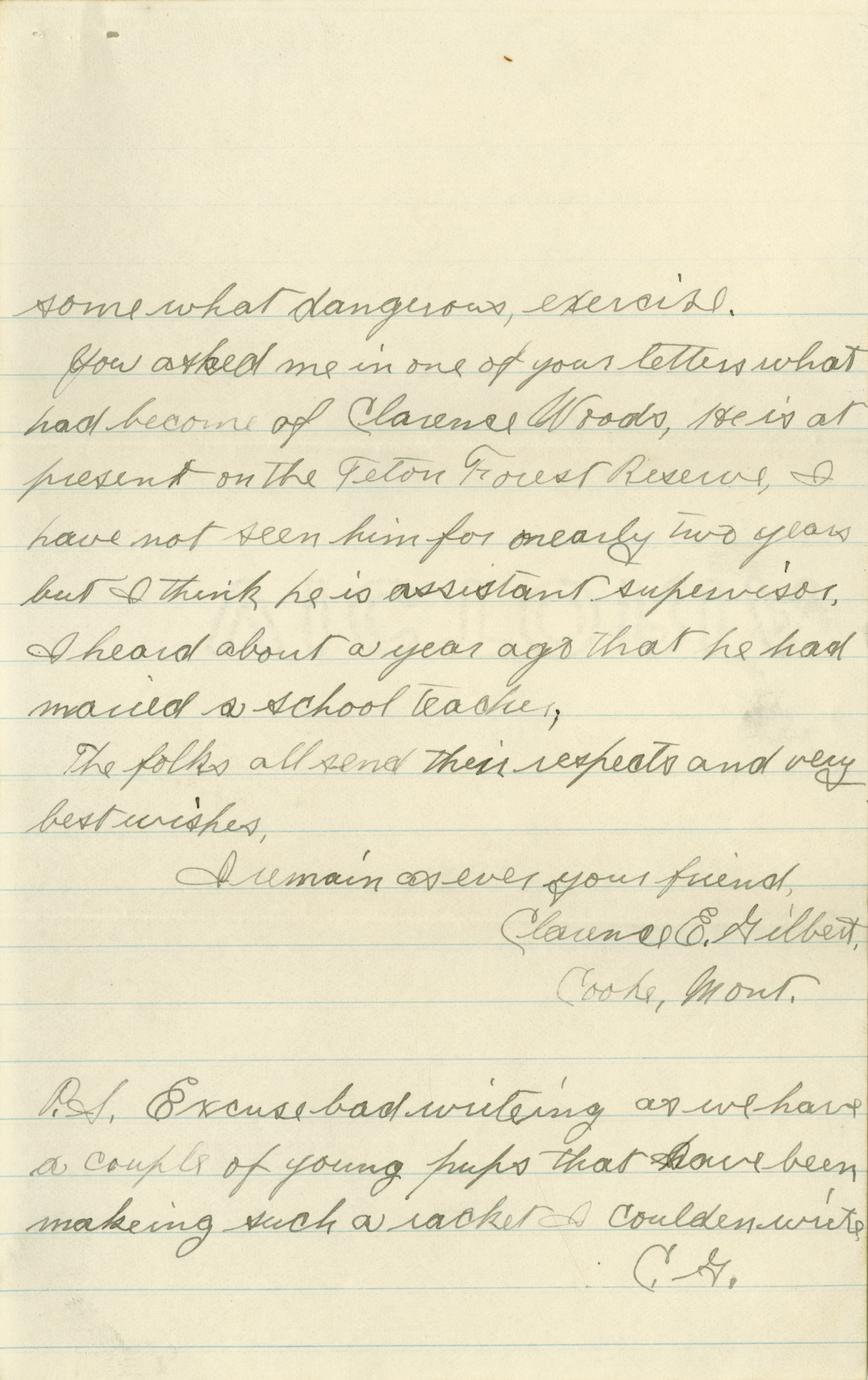 somewhat dangerous, exercise.
You asked me in one of your letters what
had become of Clarence Woods, He is at
present on the Teton Forest Reserve, I
have not seen him for nearly two years
but I think he is assistant supervisor,
I heard about a year ago that he had
maried a school teacher,
The folks all send their respects and very
best wishes,
I remain as ever your friend,
Clarence E. Gilbert,
Cooke, Mont.
P.S. Excuse bad writeing as we have
a couple of young pups that have been
makeing such a racket I coulden write
C. G.